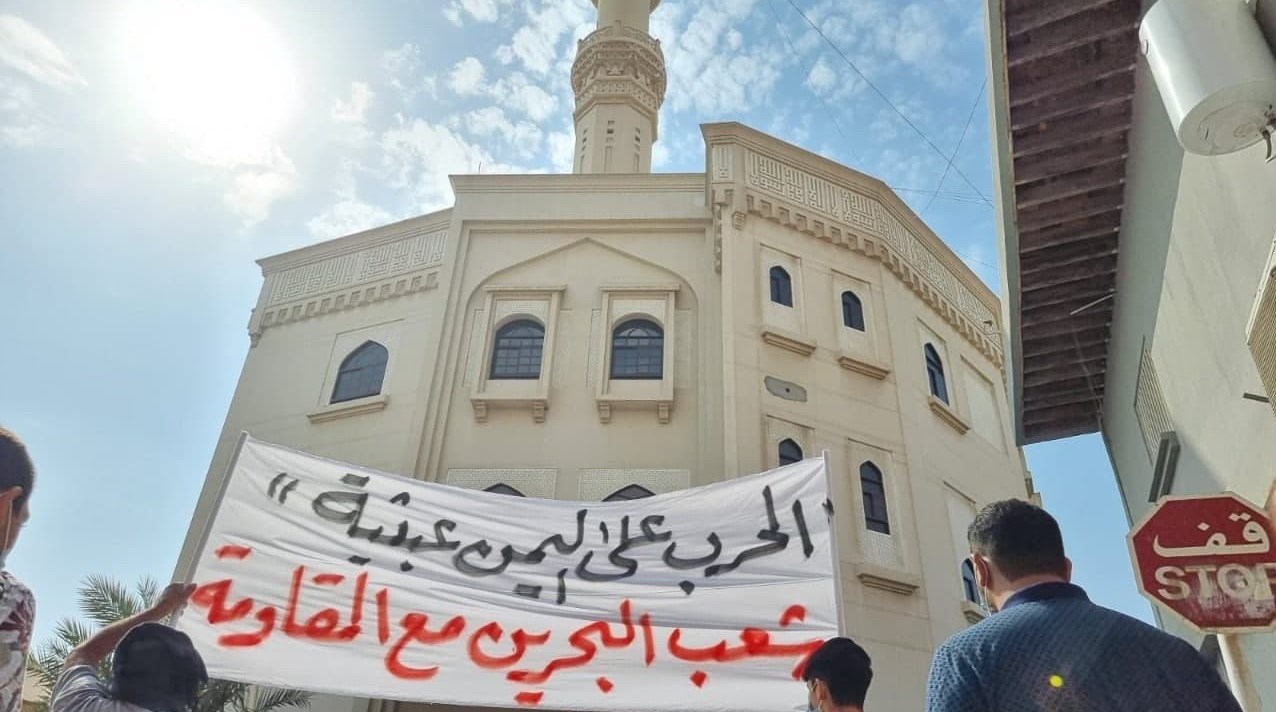 "الحرب على اليمن عبثية"
شعب البحرين مع المقاومة
قف
STOP